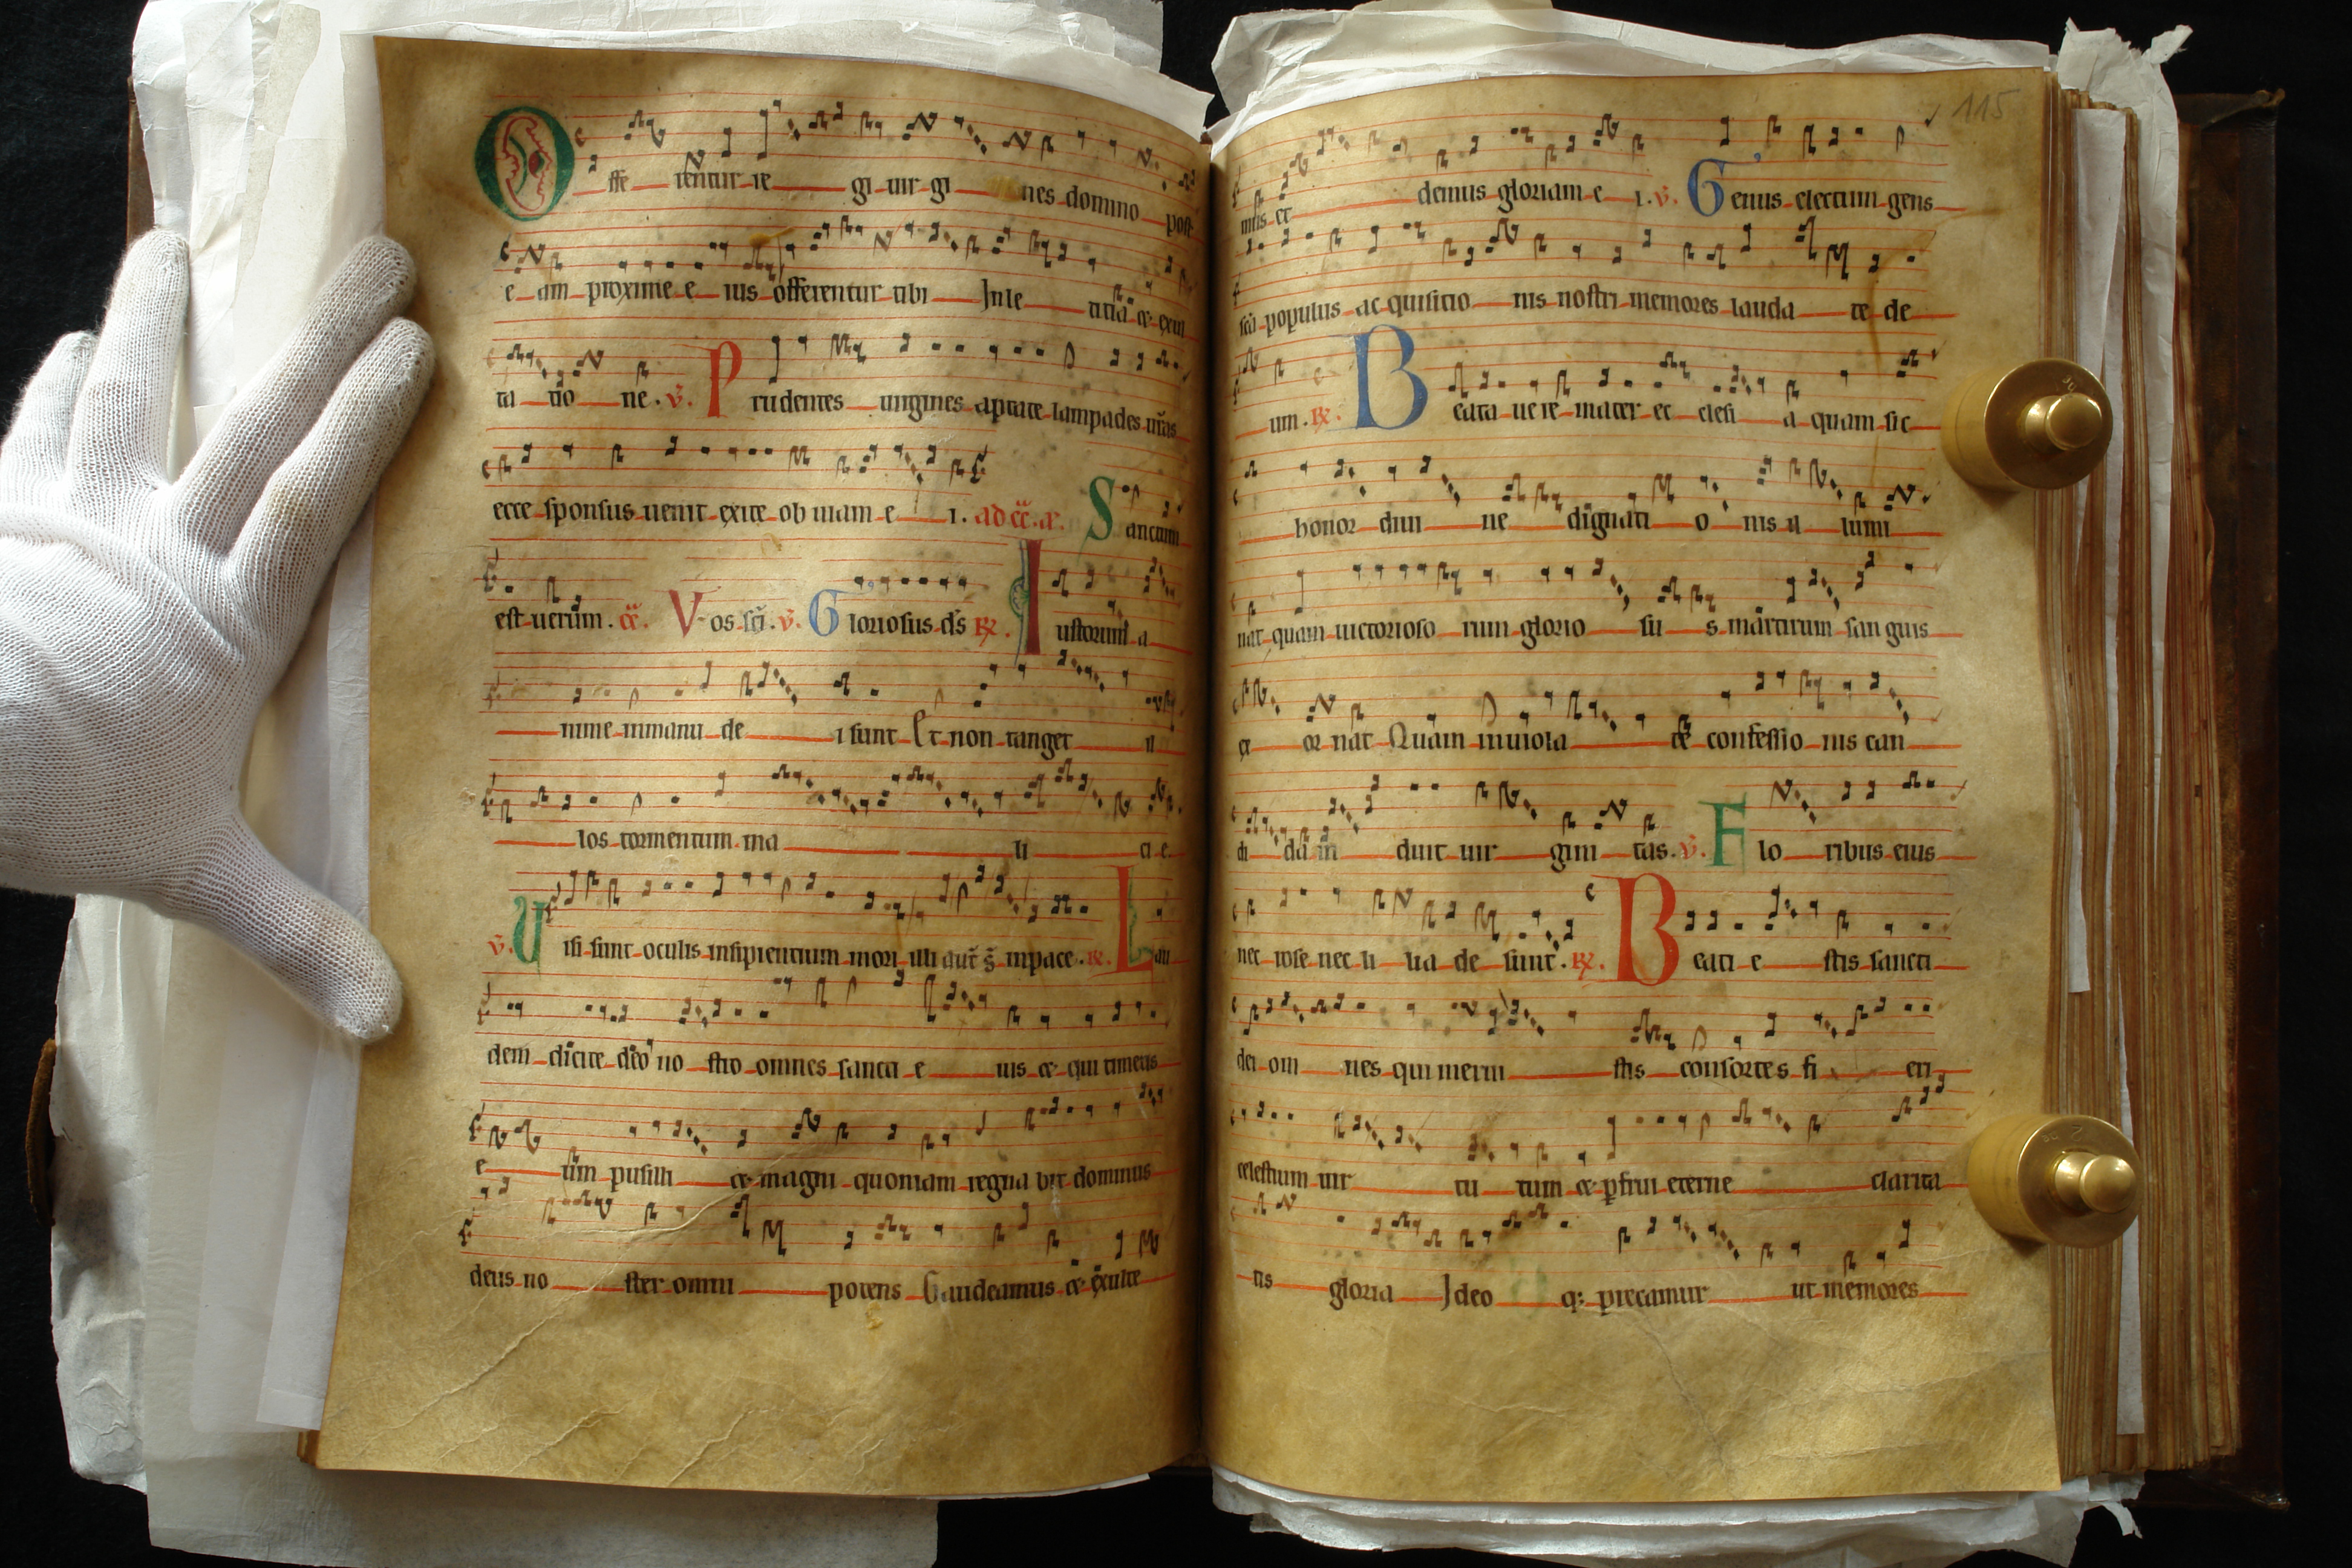 Offe rentur re gi uir gi nes domino post
e am proxime e ius offerentur tibi In le titia et exul
ta tio ne. v. Prudentes uirgines aptate lampades uras
ecce sponsus uenit exite ob uiam e i. ad cc. a. Sanctum
est uerum. cc. Vos sci. v. Gloriosus ds R. Iustorum a
nime inmanu de i sunt Et non tanget il
los tormentum ma li ci e.
v. Uisi sunt oculis insipientium mori illi aut s inpace. R. Lau
dem dicite deo no stro omnes sancti e ius et qui timetis
e um pusilli et magni quoniam regna bit dominus
deus no ster omni potens Gaudeamus et exulte
115
mus et demus gloriam e i. v. Genus electum gens
sca populus ac quisitio nis nostri memores lauda te de
um. R. Beata ue re mater ec clesi a quam sic
honor diui ne dignati o nis il lumi
nat quam uictorioso rum glorio su s martirum sanguis
ex or nat Quam inuiola te confessio nis can
di da in duit uir gini tas. v. Flo ribus eius
nec rose nec li lia de sunt. R. Beati e stis sancti
dei om nes qui merui stis consortes fi eri
celestium uir tu tum et pfrui eterne clarita
tis gloria Ideo q; precamur ut memores